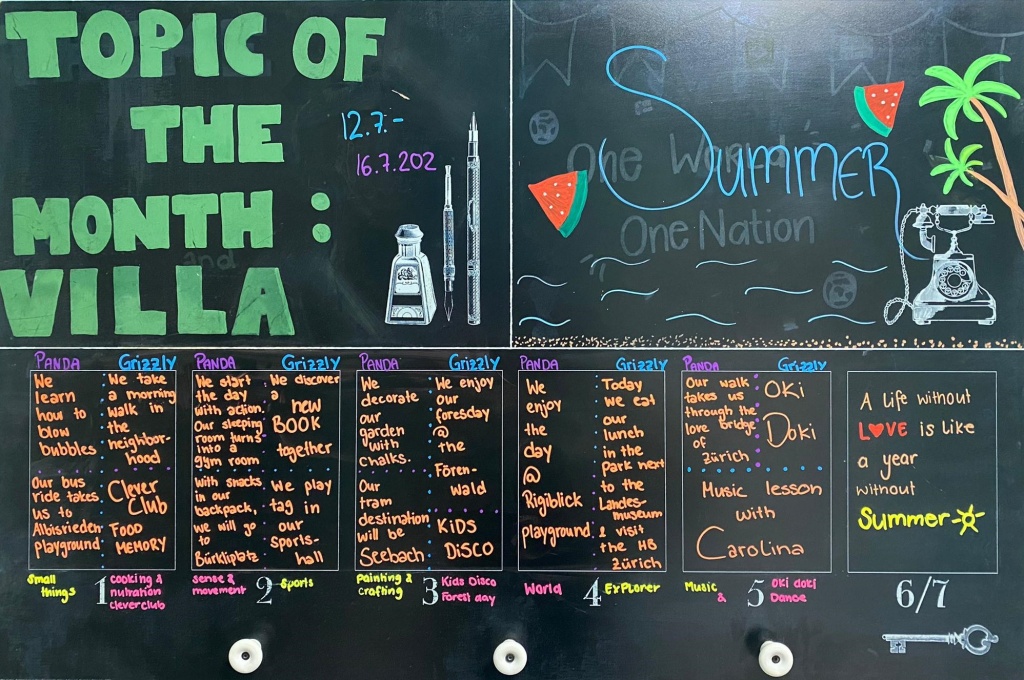 TOPIC OF
THE
MONTH :
VILLA
and
12.7.-
16.7.202
One World
Summer
One Nation
PANDA
We
learn
how to
blow
bubbles
Our bus
ride takes
us to
Albisrieden
playground.
Grizzly
We take
a morning
walk in
the
neighbor-
hood
Clever
Club
FOOD
MEMORY
small
things
1
cooking &
nutration
cleverclub
PANDA
We start
the day
with action.
Our sleeping
room turns
into a
gym room
With snacks
in our
backpack,
we will go
to
Bürkliplatz
Grizzly
We discover
a
new
BOOK
together
We play
tag in
our
sports-
hall
sense &
movement
2
Sports
PANDA
We
decorate
our
garden
with
chalks.
Our
tram
destination
will be
Seebach
Grizzly
We enjoy
our
foresday
@
the
Fören-
wald
KiDS
DiSCO
Painting &
crafting
3
Kids Disco
Forest day
PANDA
We
enjoy
the
day
@
Rigiblick
playground.
Grizzly
Today
we eat
our
lunch
in the
park next
to the
Landes-
museum
& visit
the HB
Zürich
World
4
ExPlorer
PANDA
Our walk
takes us
through the
love bridge
of
Zürich
Grizzly
OKi
Doki
Music lesson
with
Carolina
Music
&
5
oki doki
Dance
A life without
LOVE is like
a year
without
Summer
6/7